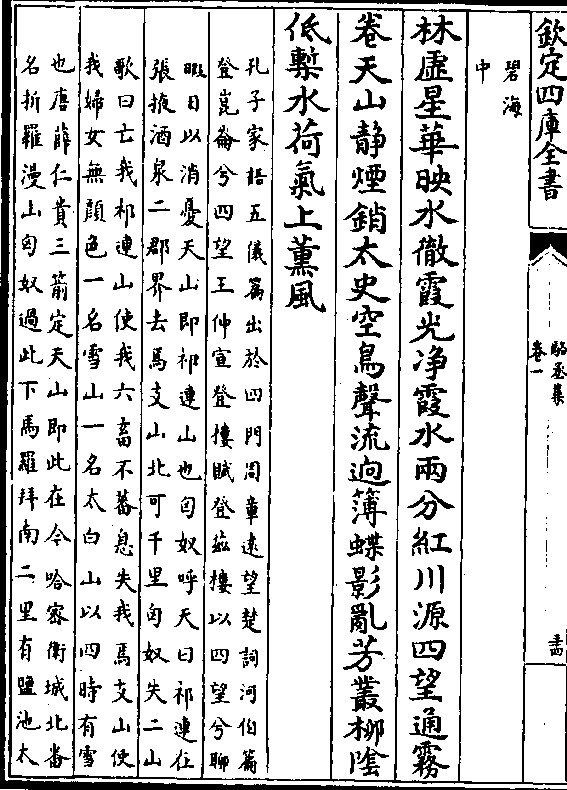 欽定四庫全書
駱丞集
卷一
碧海
中
林虛星華映水徹霞光浄霞水兩分紅川源四望通霧
卷天山靜煙銷太史空鳥聲流迥薄蝶影亂芳叢栁陰
低槧水荷氣上薫風
孔子家語五儀篇出於四門周章逺望楚詞河伯篇
登崑崙兮四望王仲宣登樓賦登兹樓以四望兮聊
暇日以消憂天山即祁連山也匈奴呼天曰祁連在
張掖酒泉二郡界去焉支山北可千里匈奴失二山
歌曰亡我祁連山使我六畜不蕃息失我焉支山使
我婦女無顔色一名雪山一名太白山以四時有雪
也唐薛仁貴三箭定天山即此在今哈密衛城北畨
名折羅漫山匈奴過此下馬羅拜南二里有鹽池太